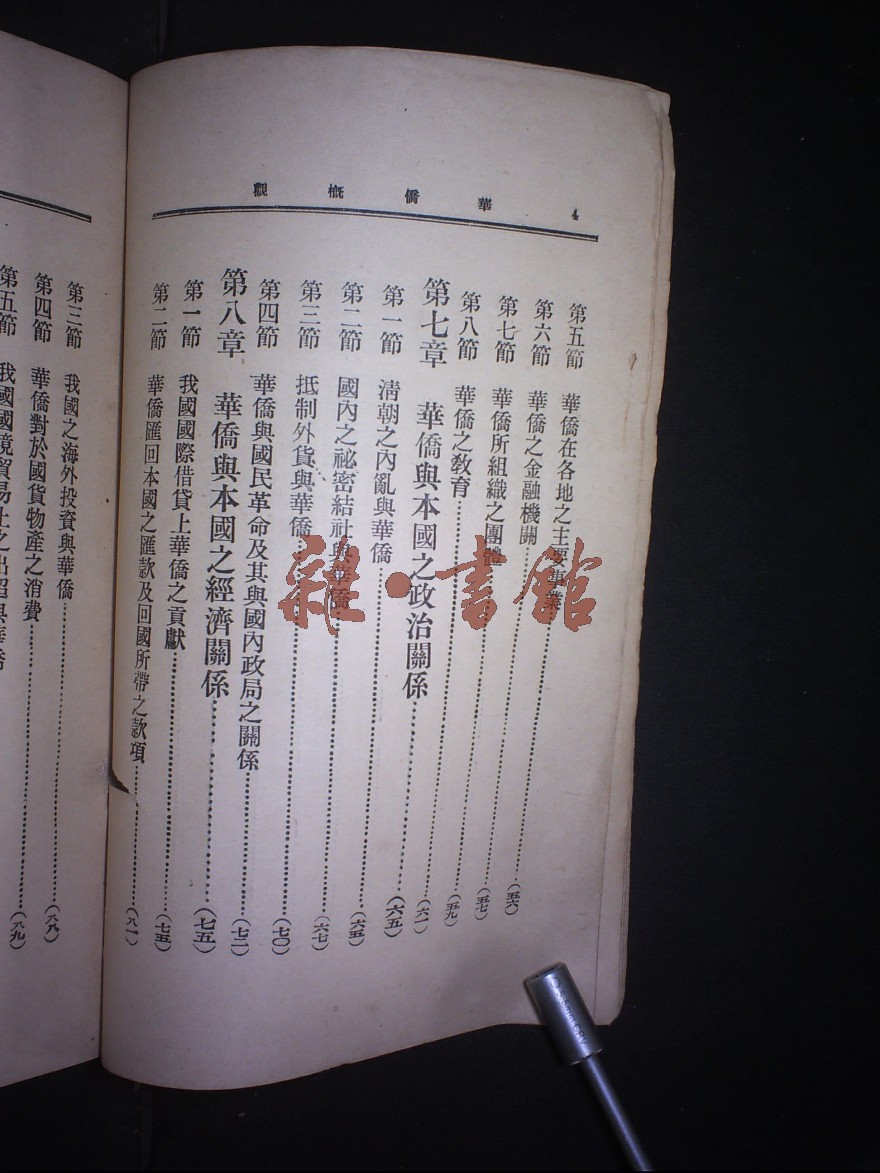 4 華僑概觀
第五節 華僑在各地之主要事業……(五六)
第六節 華僑之金融機關……(五七)
第七節 華僑所組織之團體……(五九)
第八節 華僑之教育……(六一)
第七章 華僑與本國之政治關係……(六五)
第一節 清朝之內亂與華僑……(六五)
第二節 國內之祕密結社與華僑……(六七)
第三節 抵制外貨與華僑……(七〇)
第四節 華僑與國民革命及其與國內政局之關係……(七二)
第八章 華僑與本國之經濟關係……(七五)
第一節 我國國際借貸上華僑之貢獻……(七五)
第二節 華僑匯回本國之匯款及回國所帶之款項……(八一)
第三節 我國之海外投資與華僑……(八八)
第四節 華僑對於國貨物產之消費……(八九)
第五節 我國國境貿易上之出超與華僑
雜·書館